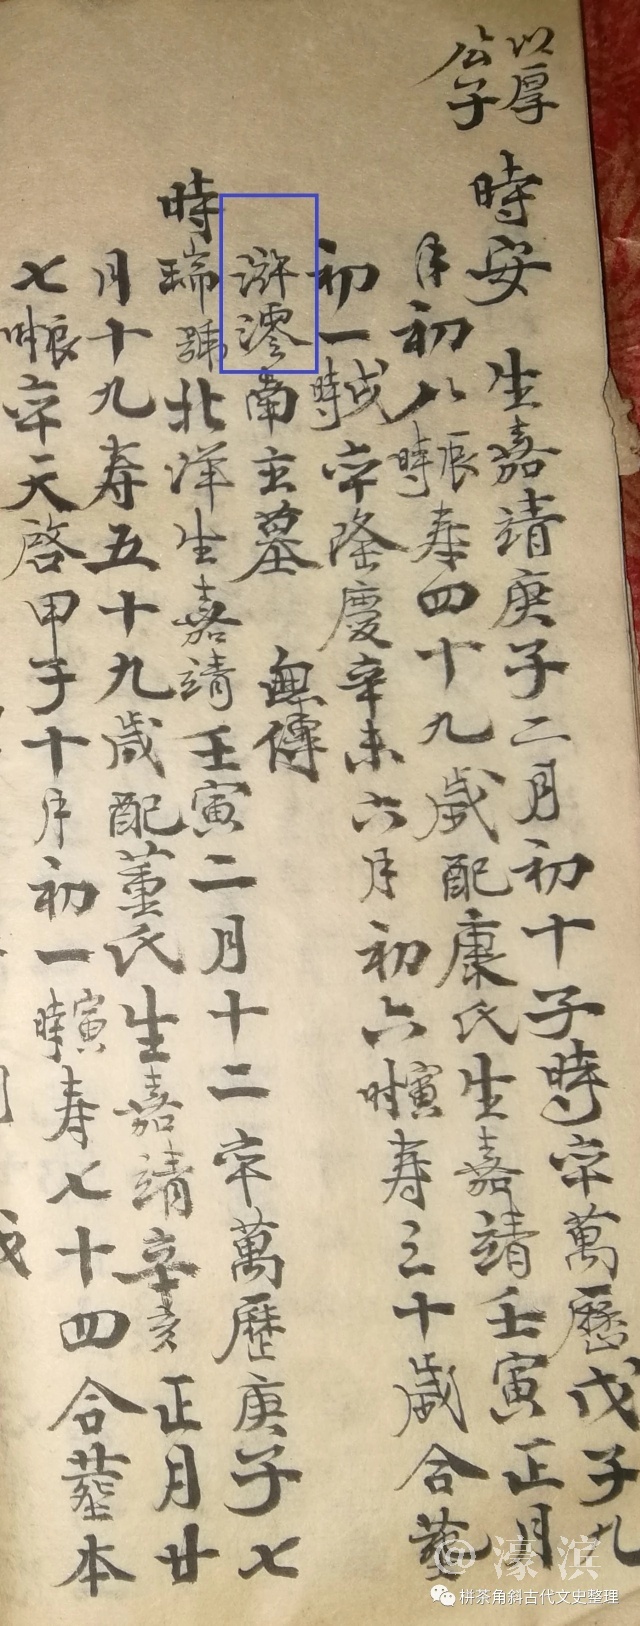 以厚
公子
時安 生嘉靖庚子二月初十子時卒萬歷戊子九
月初八辰時寿四十九歲配康氏生嘉靖壬寅正月
初一戌時卒隆慶辛未六月初六寅時寿三十歲合墓
滸澪南主墓 無傳
時瑞號北洋生嘉靖壬寅二月十二卒萬歷庚子七
月十九寿五十九歲配董氏生嘉靖辛亥正月廿
七辰時卒天啓甲子十月初一寅時寿七十四合葬本
@濠滨
栟茶角斜古代文史整理